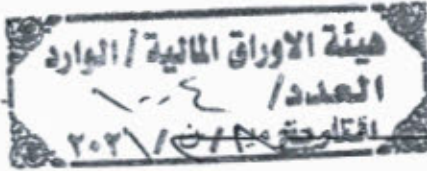 هيئة الاوراق المالية / الوارد
العدد / ١٠٠٤
٢٠٢١ /